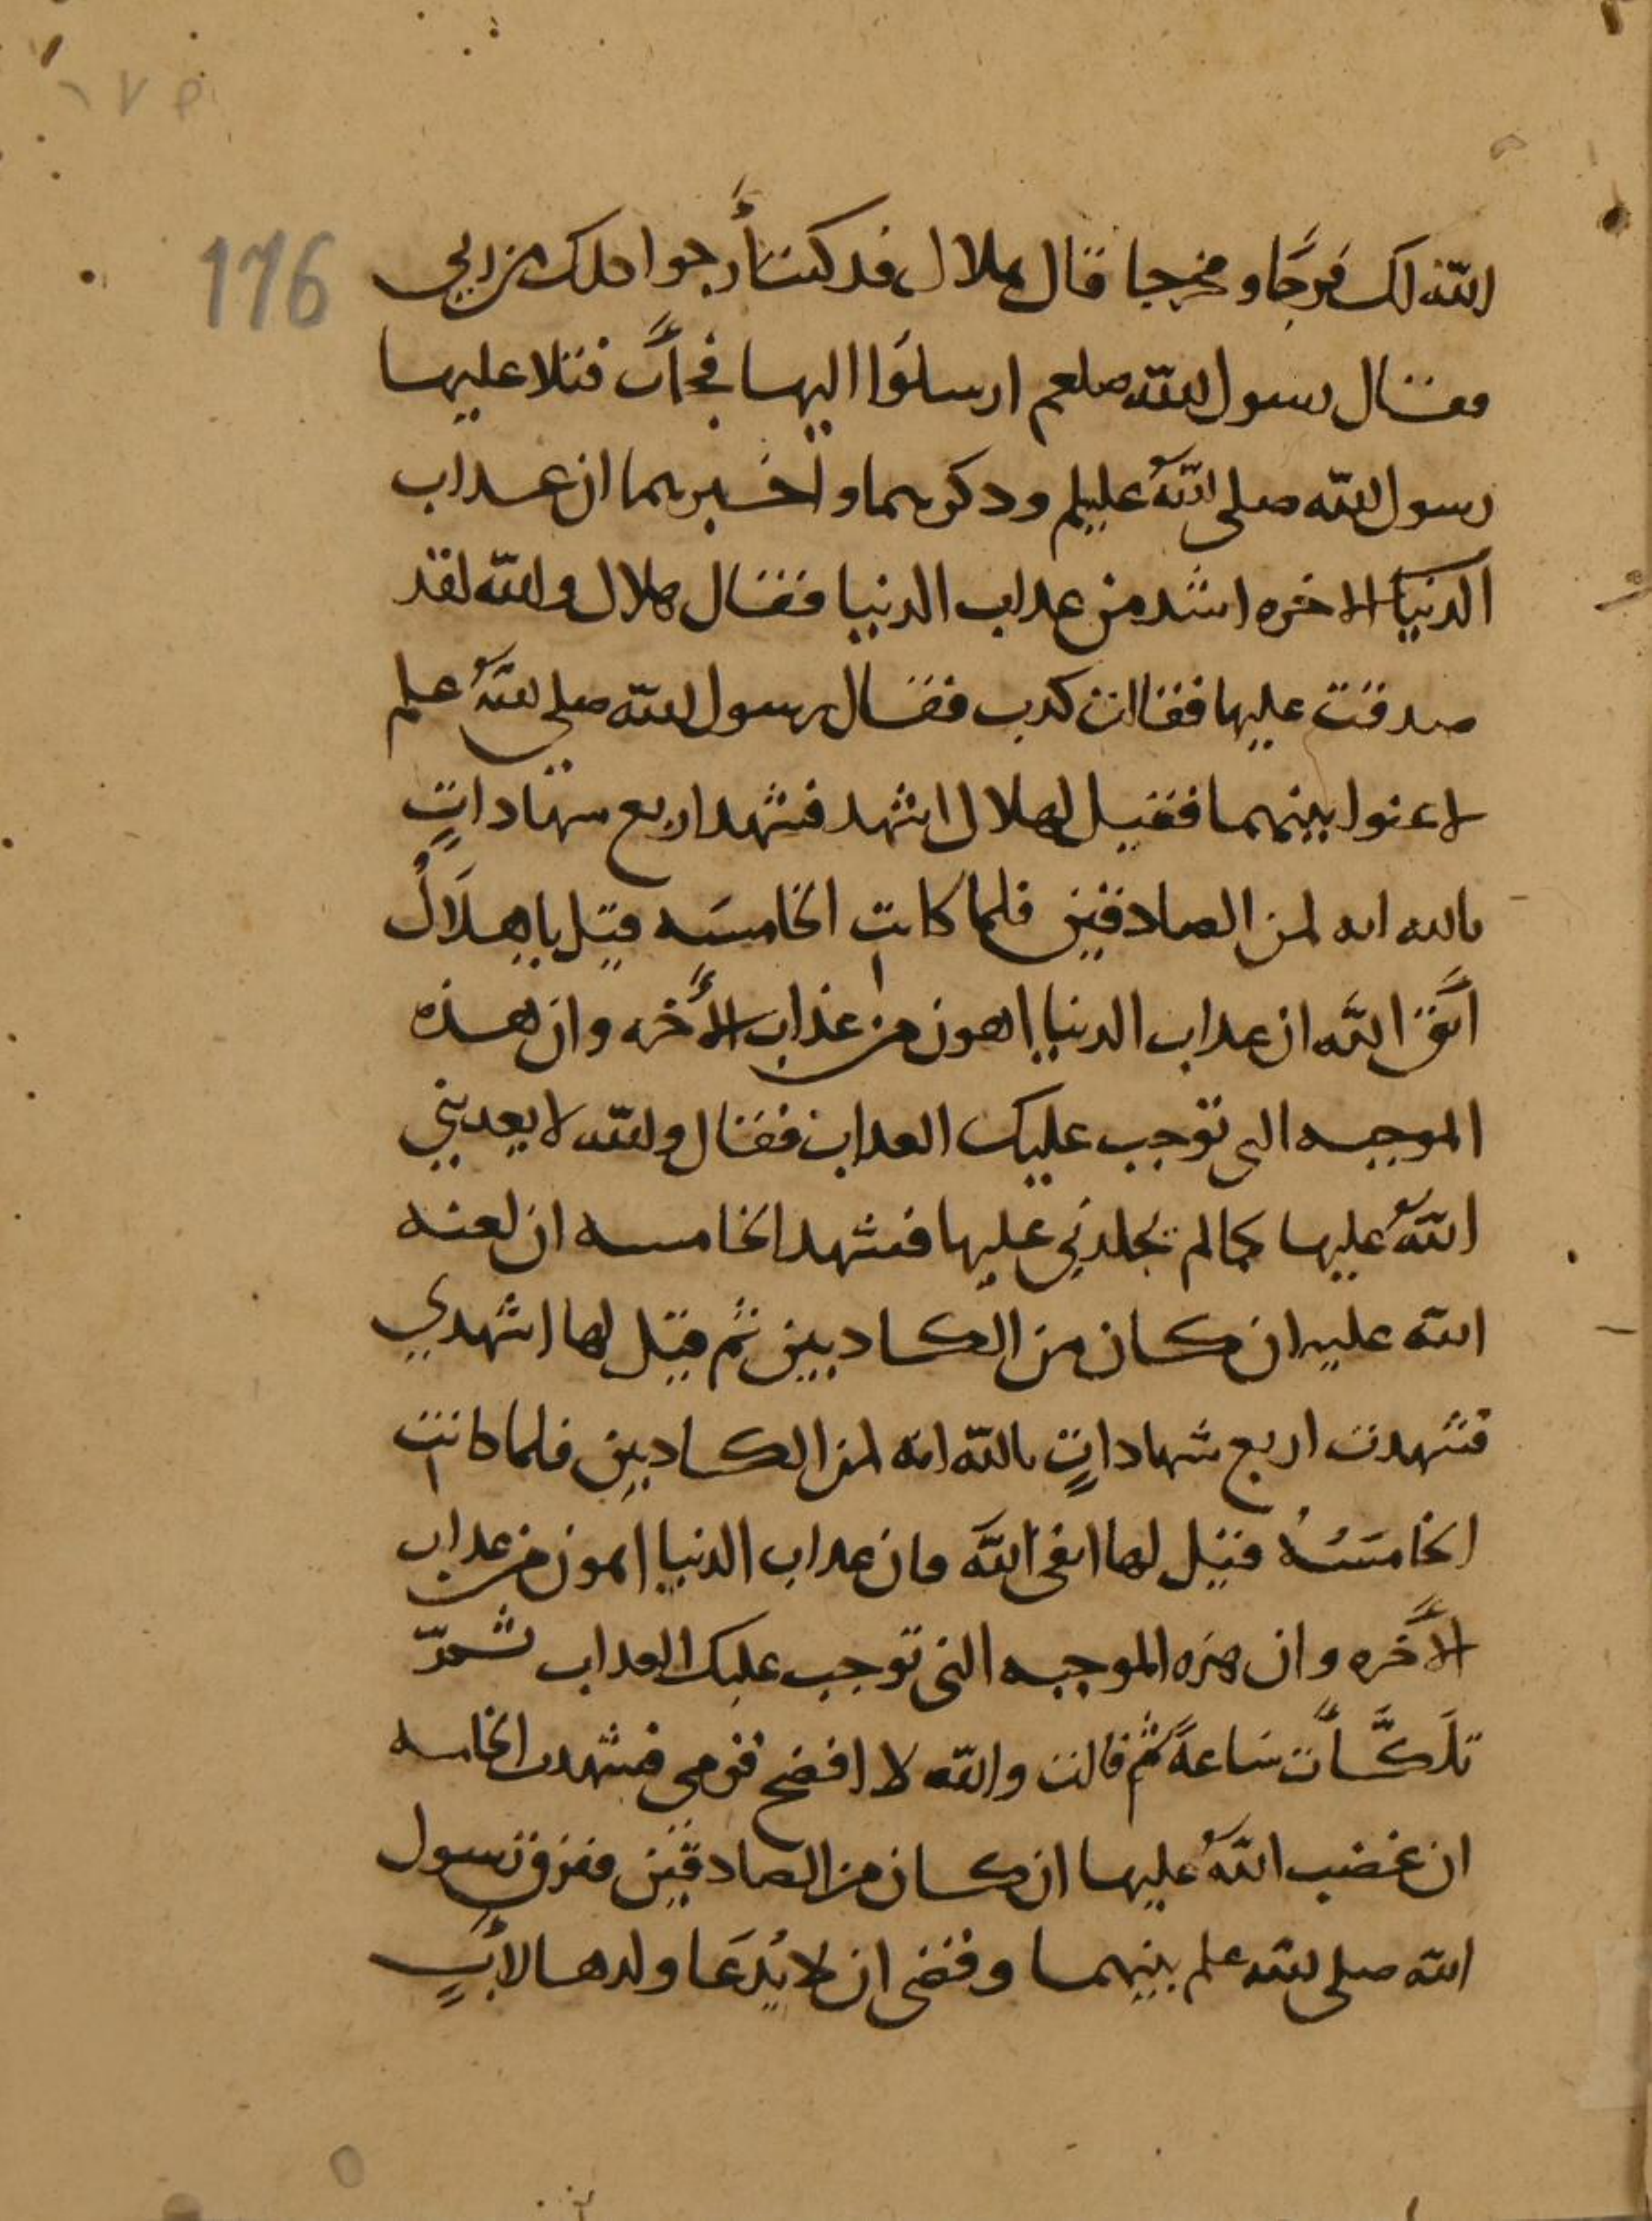 176
الله لك فرجًا ومخرجا قال هلال قد كنت أرجوا ذلك من ربي
فقال رسول الله صلعم ارسلوا اليها فجأت فتلا عليها
رسول الله صلى اللهُ عليلم ودكرهما واخبرهما ان عداب
الدنيا الاخره اشد من عداب الدنيا فقال هلال والله لقد
صدقت عليها فقالت كدب فقال رسول الله صلى اللهُ علم
لاعنوا بينهما فقيل لهلال اشهد فشهد اربع شهاداتٍ
بالله انه لمن الصادقين فلما كانت الخامسَه قيل ياهلَالُ
اتَّق الله ان عداب الدنيا اهون من عذاب الأخره وان هذه
الموجبه التى توجب عليك العداب فقال والله لا يعدبني
اللهُ عليها كما لم يجلدني عليها فشهد الخامسه ان لعنه
الله عليه ان كان من الكادبين ثم قيل لها اشهدي
فشهدت اربع شهاداتٍ بالله انه لمن الكادبين فلما كانت
الخامسَهُ قيل لها اتقى اللَّهَ فان عداب الدنيا اهون من عداب
الأخره وان هذه الموجبه التى توجب عليك العداب ثمّ
تلَكَّأت سَاعةً ثم قالت والله لا افضح قومي فشهدت الخامسه
ان غضب اللهُ عليها ان كان من الصادقين ففرق رسول
الله صلى الله علم بينهما وقضى ان لا يُدعَا ولدها لأبٍ